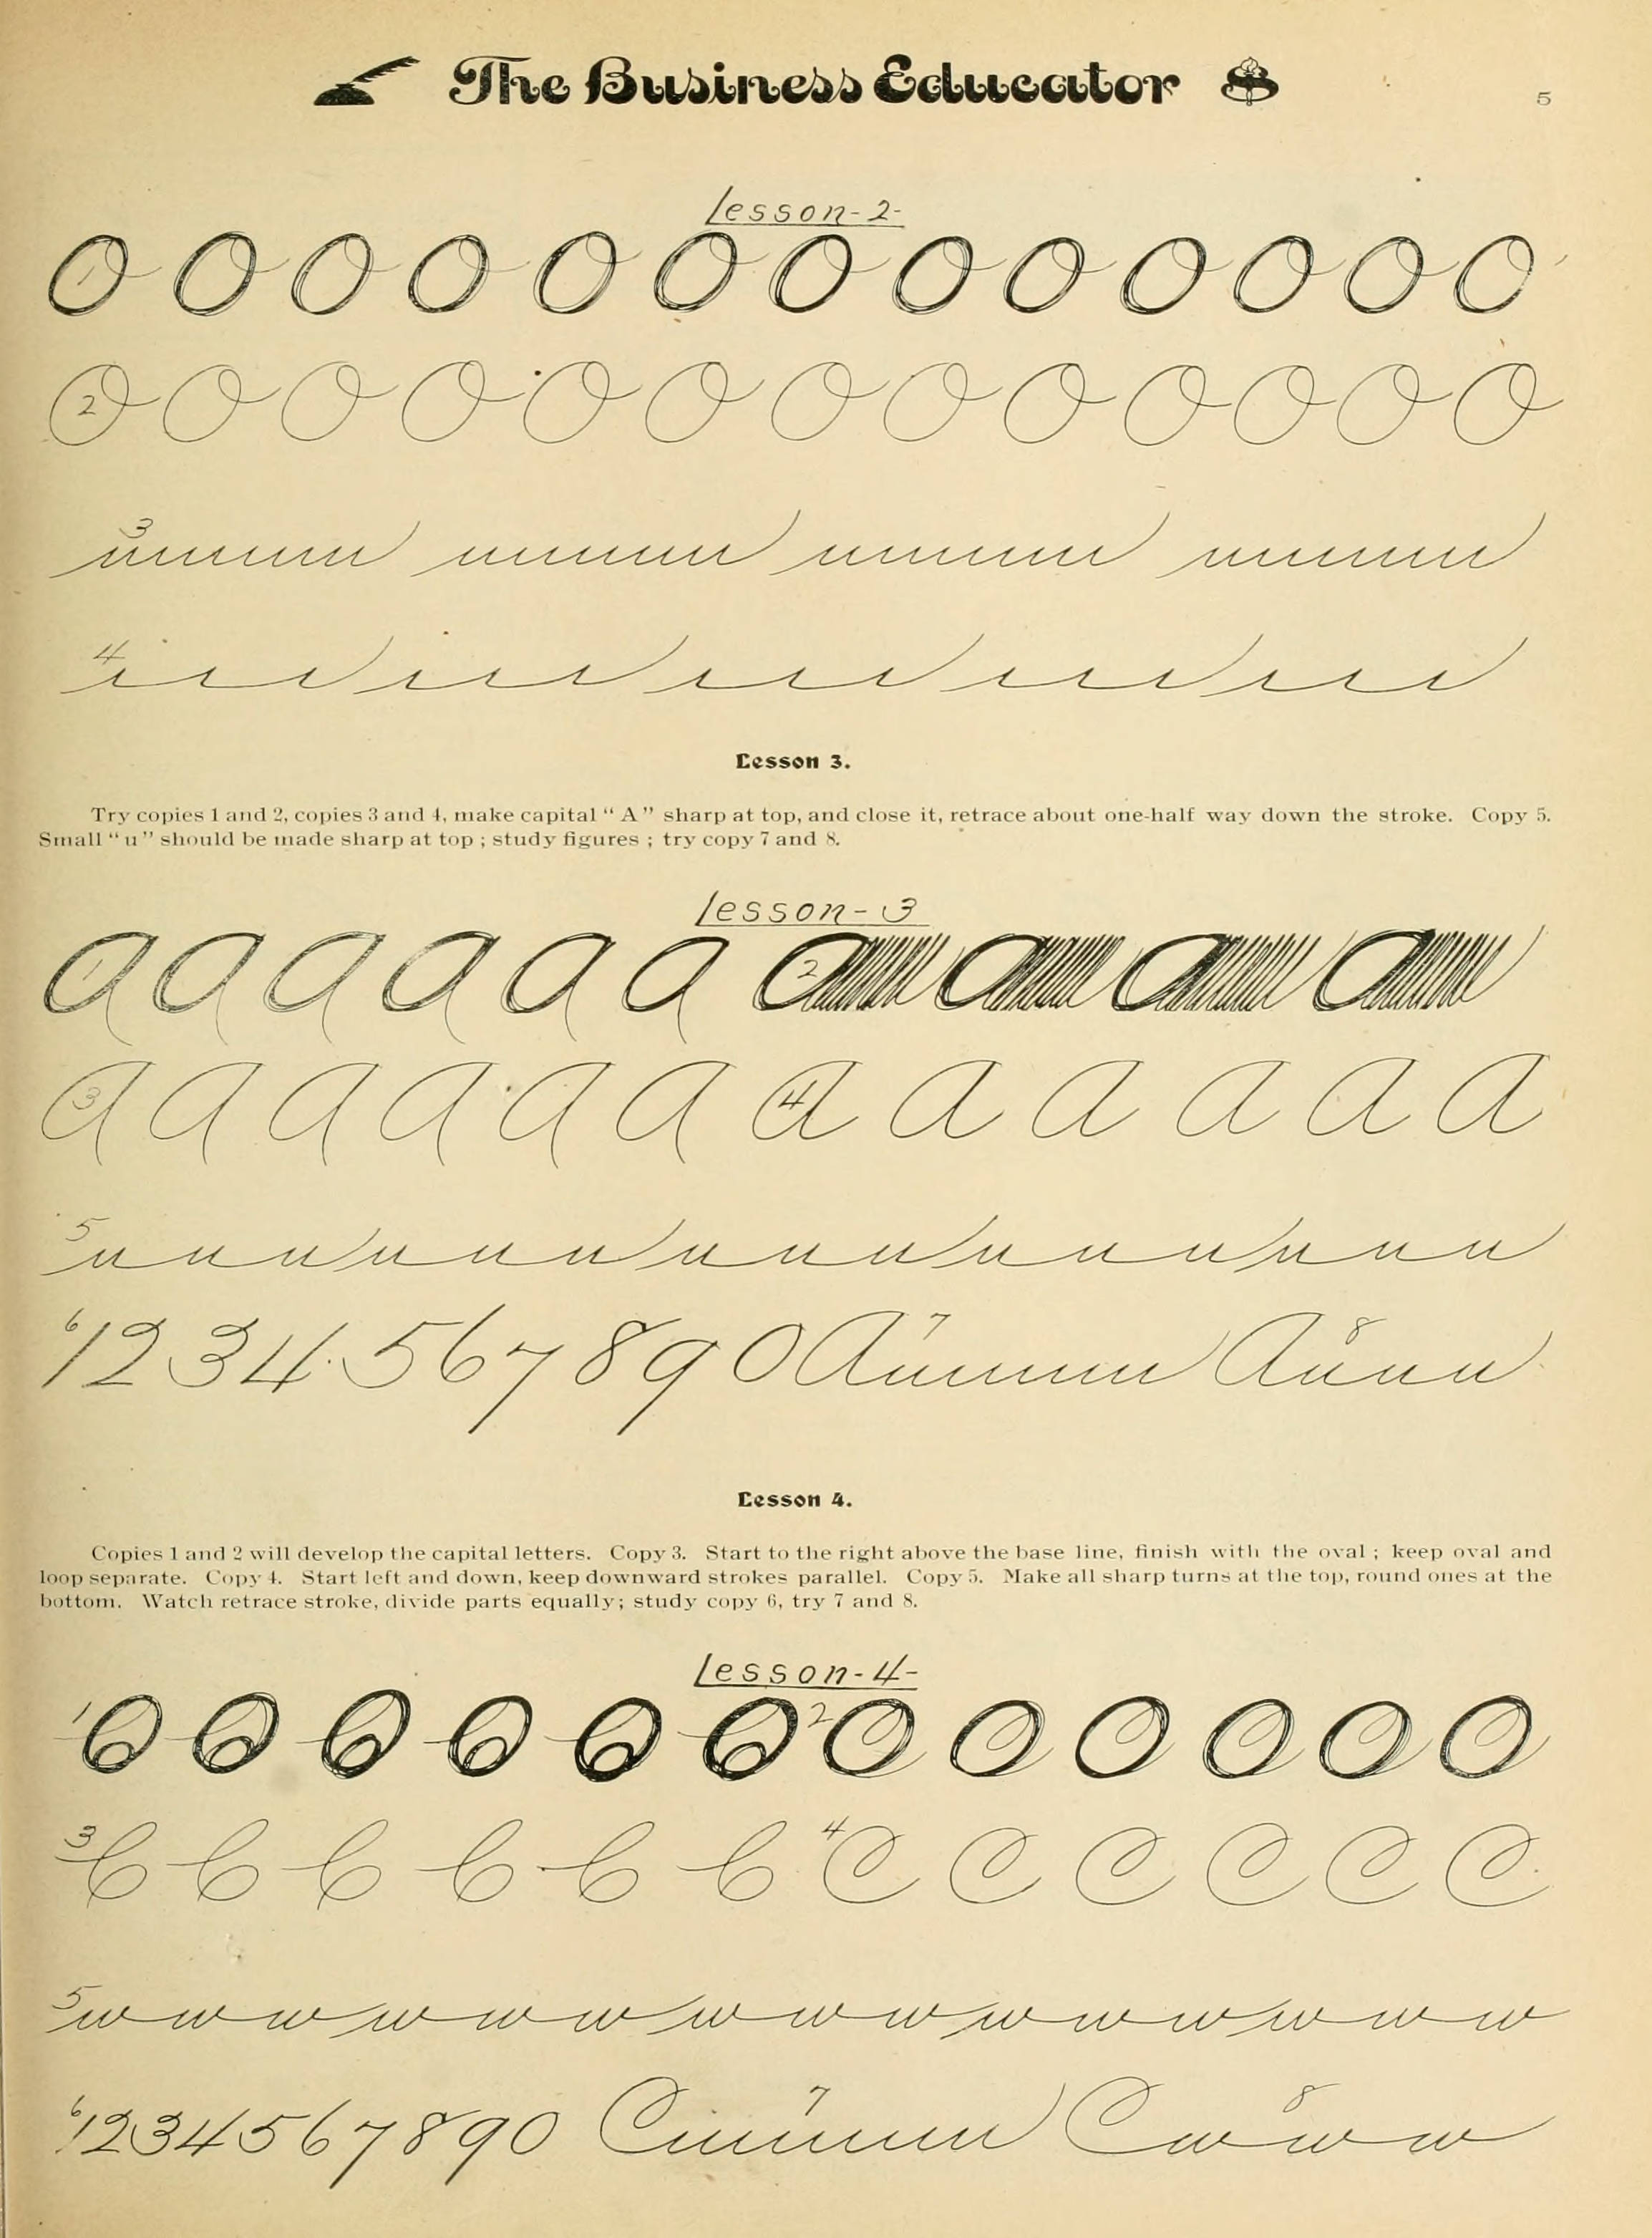 The Business Educator 5
Lesson-2-
1 O O O O O O O O O O O O O
2 O O O O O O O O O O O O O
3
4
Lesson 3.
Try copies 1 and 2, copies 3 and 4, make capital “ A ” sharp at top, and close it, retrace about one-half way down the stroke. Copy 5.
Small “ u ” should be made sharp at top ; study figures ; try copy 7 and 8.
Lesson-3
1 2
3 4 a a a a a a
5 u u u u u u u u u u u u u u u
6 1 2 3 4 5 6 7 8 9 0 7 8
Lesson 4.
Copies 1 and 2 will develop the capital letters. Copy 3. Start to the right above the base line, finish with the oval ; keep oval and
loop separate. Copy 4. Start left and down, keep downward strokes parallel. Copy 5. Make all sharp turns at the top, round ones at the
bottom. Watch retrace stroke, divide parts equally ; study copy 6, try 7 and 8.
Lesson-4-
1 2
3 4 C C C C C C
5 w w w w w w w w w w w w w w w
6 1 2 3 4 5 6 7 8 9 0 7 8